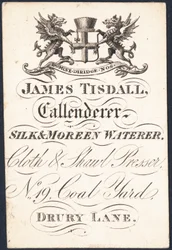 JAMES TISDALL,
Callenderer,
SILK & MOREEN WATERER,
Cloth & Shawl Presser,
No. 19, Coal Yard,
DRURY LANE.